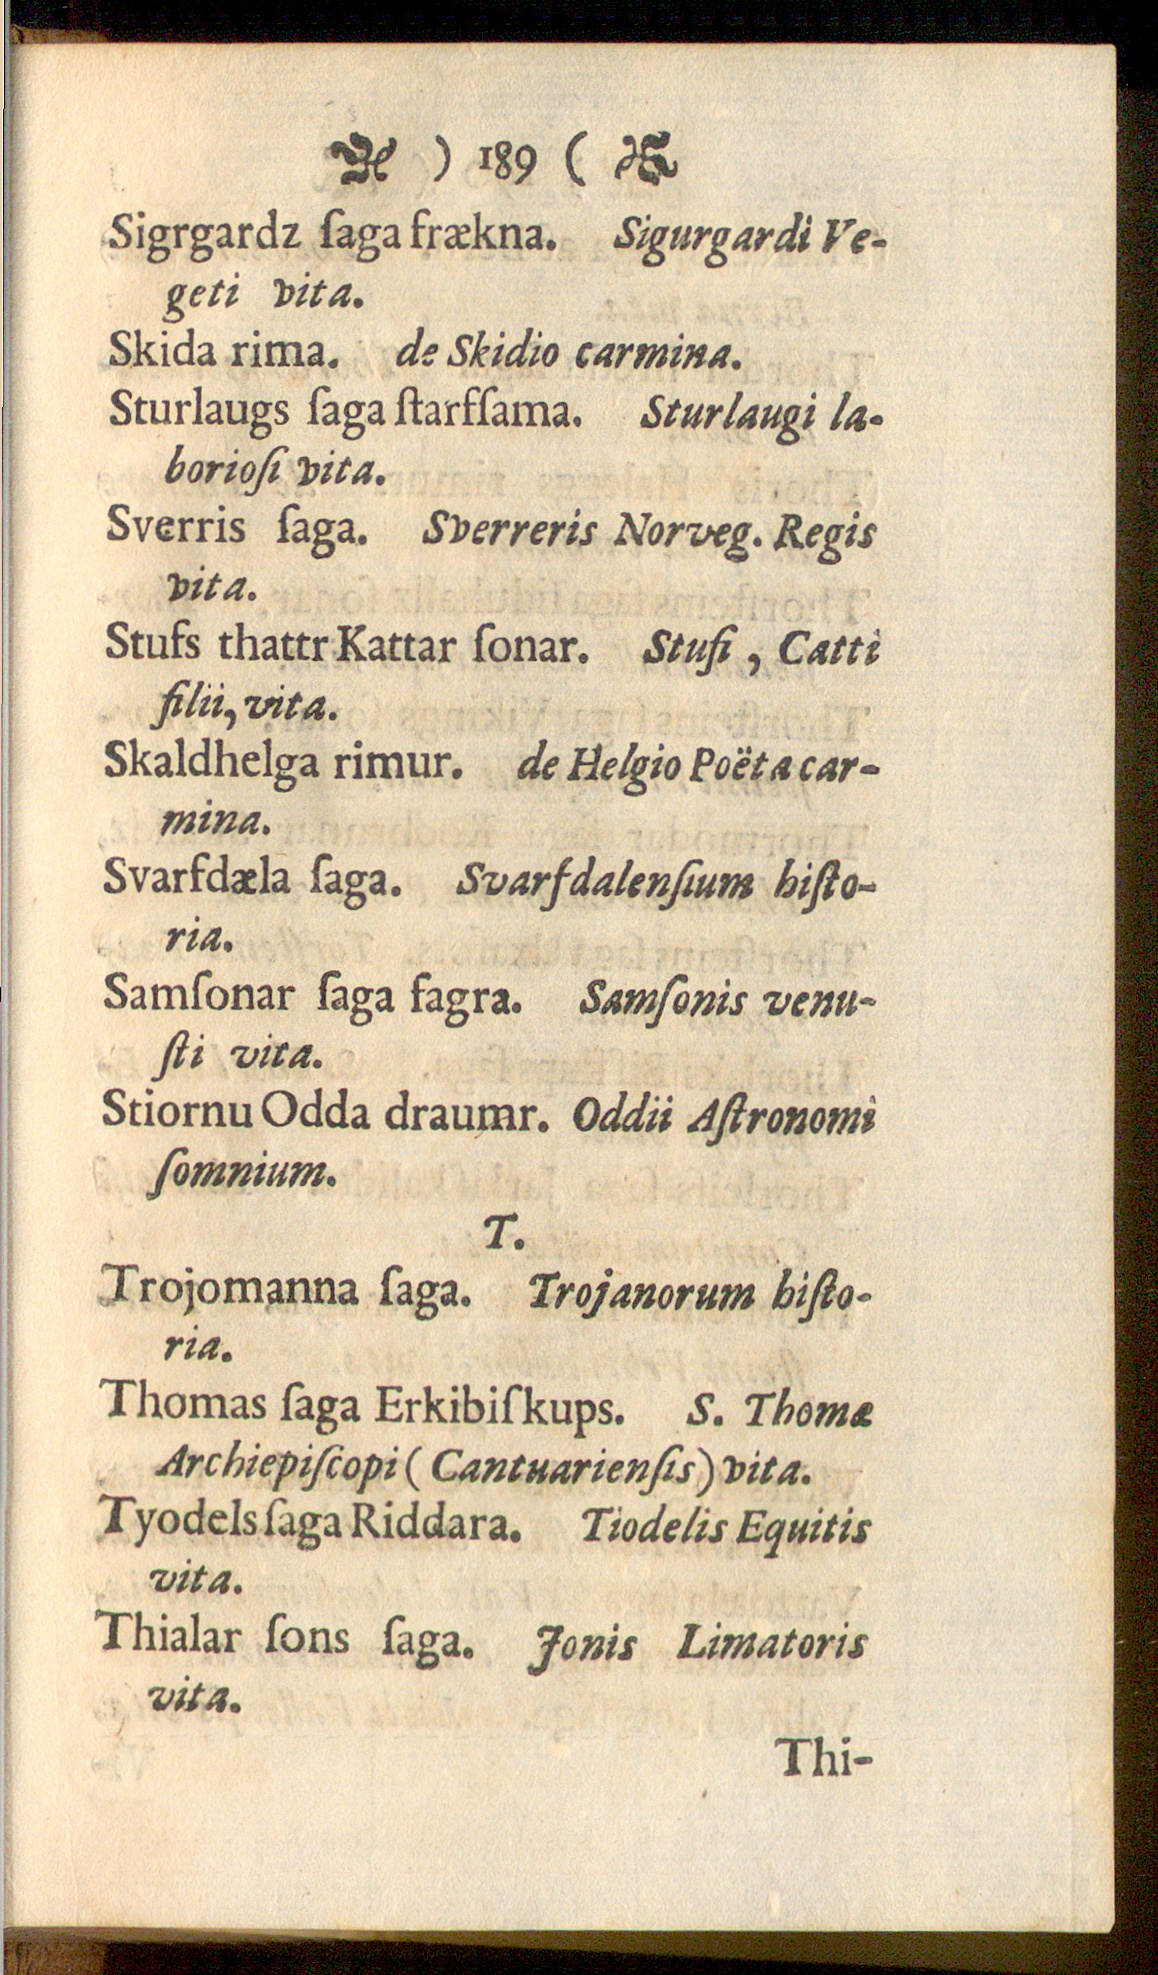 ) 189 (
Sigrgardz ſaga frækna. Sigurgardi Ve-
geti vita.
Skida rima. de Skidio carmina.
Sturlaugs ſaga ſtarfſama. Sturlaugi la-
borioſi vita.
Sverris ſaga. Sverreris Norveg. Regis
vita.
Stufs thattr Kattar ſonar. Stufi, Catti
filii, vita.
Skaldhelga rimur. de Helgio Poëta car-
mina.
Svarfdæla ſaga. Svarfdalenſium hiſto-
ria.
Samſonar ſaga fagra. Samſonis venu-
ſti vita.
Stiornu Odda draumr. Oddii Aſtronomi
ſomnium.
T.
Trojomanna ſaga. Trojanorum hiſto-
ria.
Thomas ſaga Erkibiſkups. S. Thomæ
Archiepiſcopi (Cantuarienſis) vita.
Tyodels ſaga Riddara. Tiodelis Equitis
vita.
Thialar ſons ſaga. Jonis Limatoris
vita.
Thi-